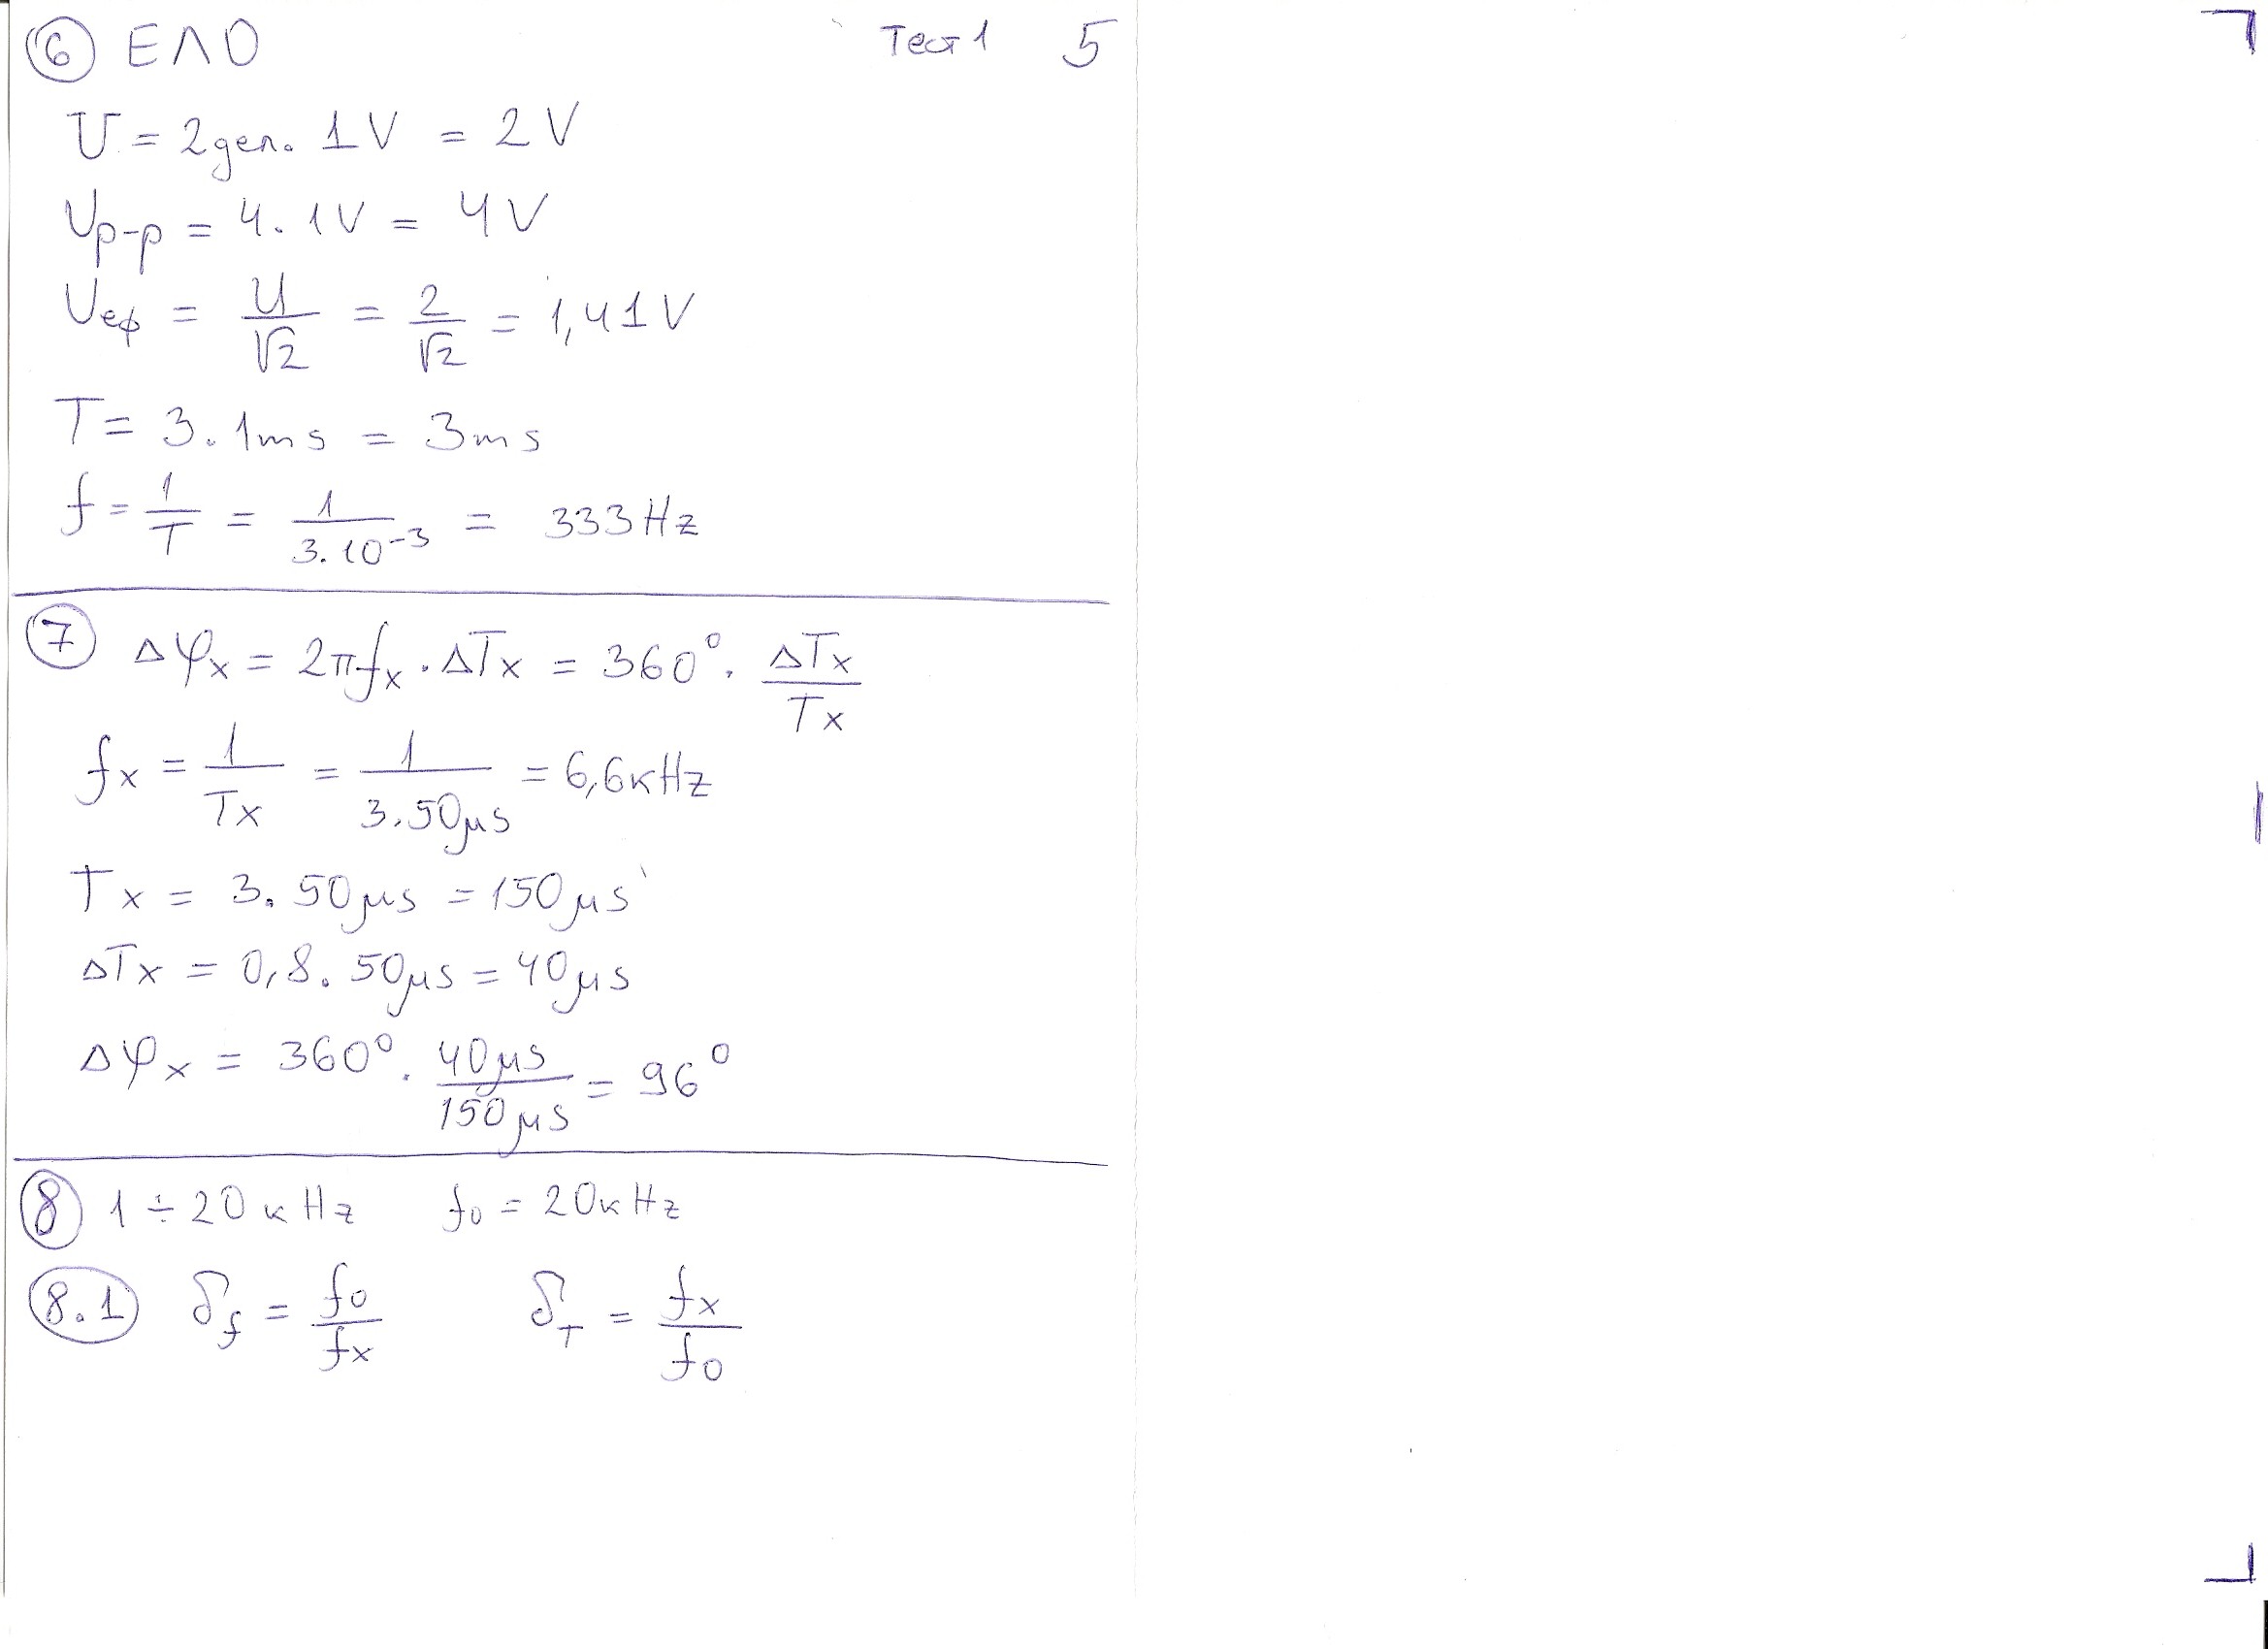 ⑥ ЕЛО Тест 1 5
U = 2 дел. 1V = 2V
Up-p = 4. 1V = 4V
Uеф = U/√2 = 2/√2 = 1,41V
T = 3. 1ms = 3ms
f = 1/T = 1/3.10⁻³ = 333Hz
⑦ Δφx = 2πfx . ΔTx = 360° . ΔTx/Tx
fx = 1/Tx = 1/3.50μs = 6,6кHz
Tx = 3. 50μs = 150μs
ΔTx = 0,8. 50μs = 40μs
Δφx = 360° . 40μs/150μs = 96°
⑧ 1 ÷ 20кHz f₀ = 20кHz
8.1 δf = f₀/fx δT = fx/f₀